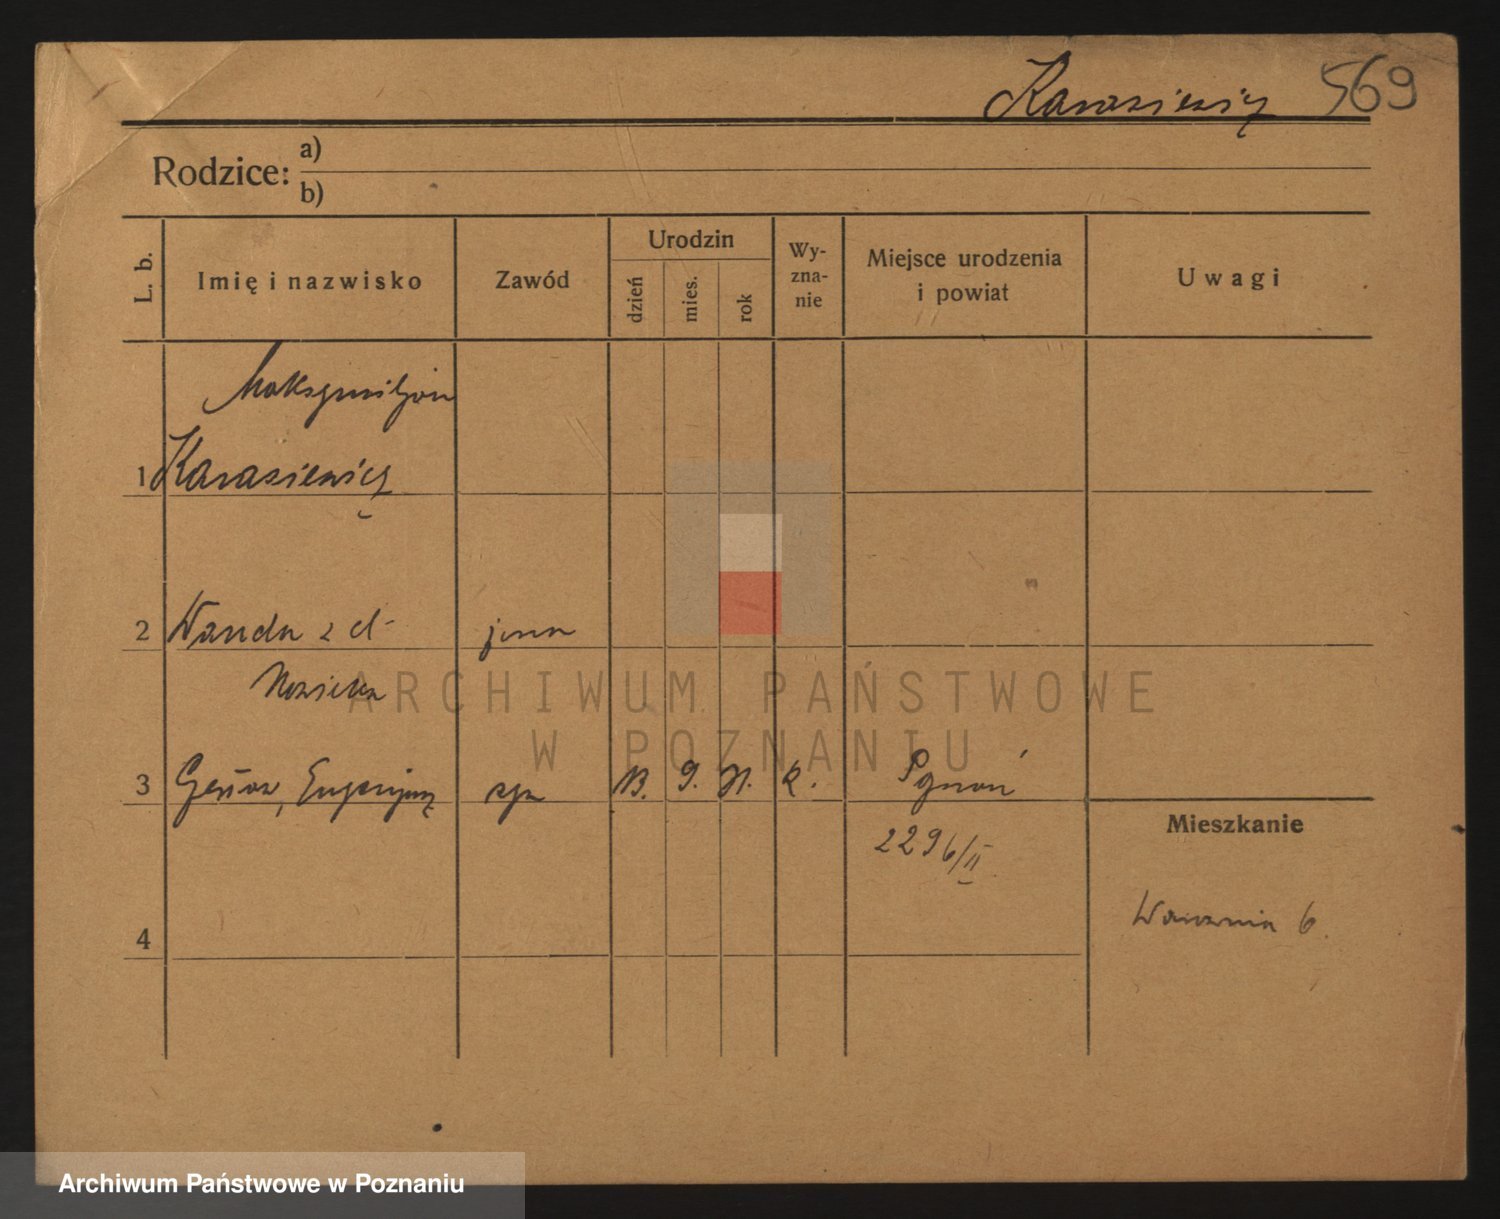 Karasiewicz 569
Rodzice: a)
b)
L. b.
Imię i nazwisko
Zawód
Urodzin
dzień
mies.
rok
Wy-
zna-
nie
Miejsce urodzenia
i powiat
Uwagi
Maksymiljan
1 Karasiewicz
2 Wanda z d. żona
Nowicka
3 Eugenjusz syn 9. Poznań
2296/II
Mieszkanie
6.
4
ARCHIWUM PAŃSTWOWE
W POZNANIU
Archiwum Państwowe w Poznaniu